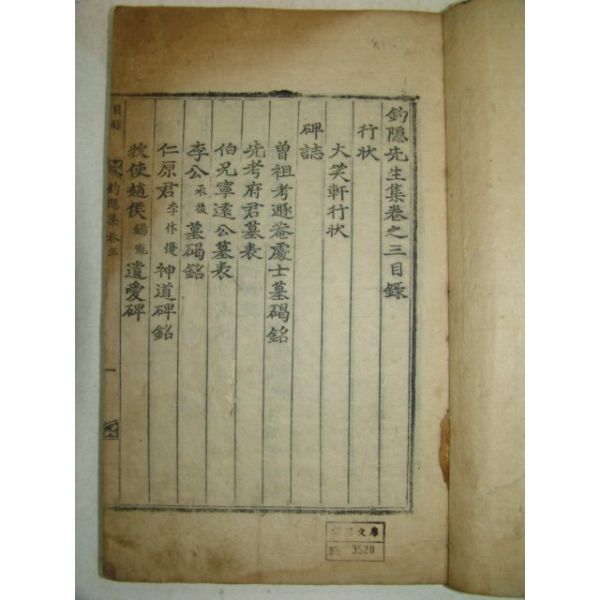 釣隱先生集卷之三目錄
行狀
大笑軒行狀
碑誌
曽祖考遯菴處士墓碣銘
先考府君墓表
伯兄寧遠公墓表
李公承後墓碣銘
仁原君李休復神道碑銘
牧使趙侯錫龍遺愛碑
目錄
釣隱集卷三
一
文庫
3520